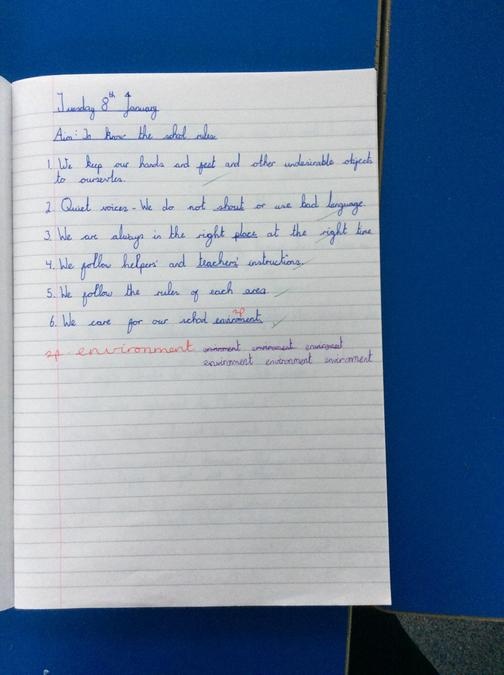 Tuesday 8th January
Aim: To know the school rules
1. We keep our hands and feet and other undesirable objects
to ourselves.
2. Quiet voices - We do not shout or use bad language.
3. We are always in the right place at the right time
4. We follow helpers' and teachers' instructions.
5. We follow the rules of each area.
6. We care for our school enviroment. sp
sp environment enviroment enviroment enviroment
environment environment environment